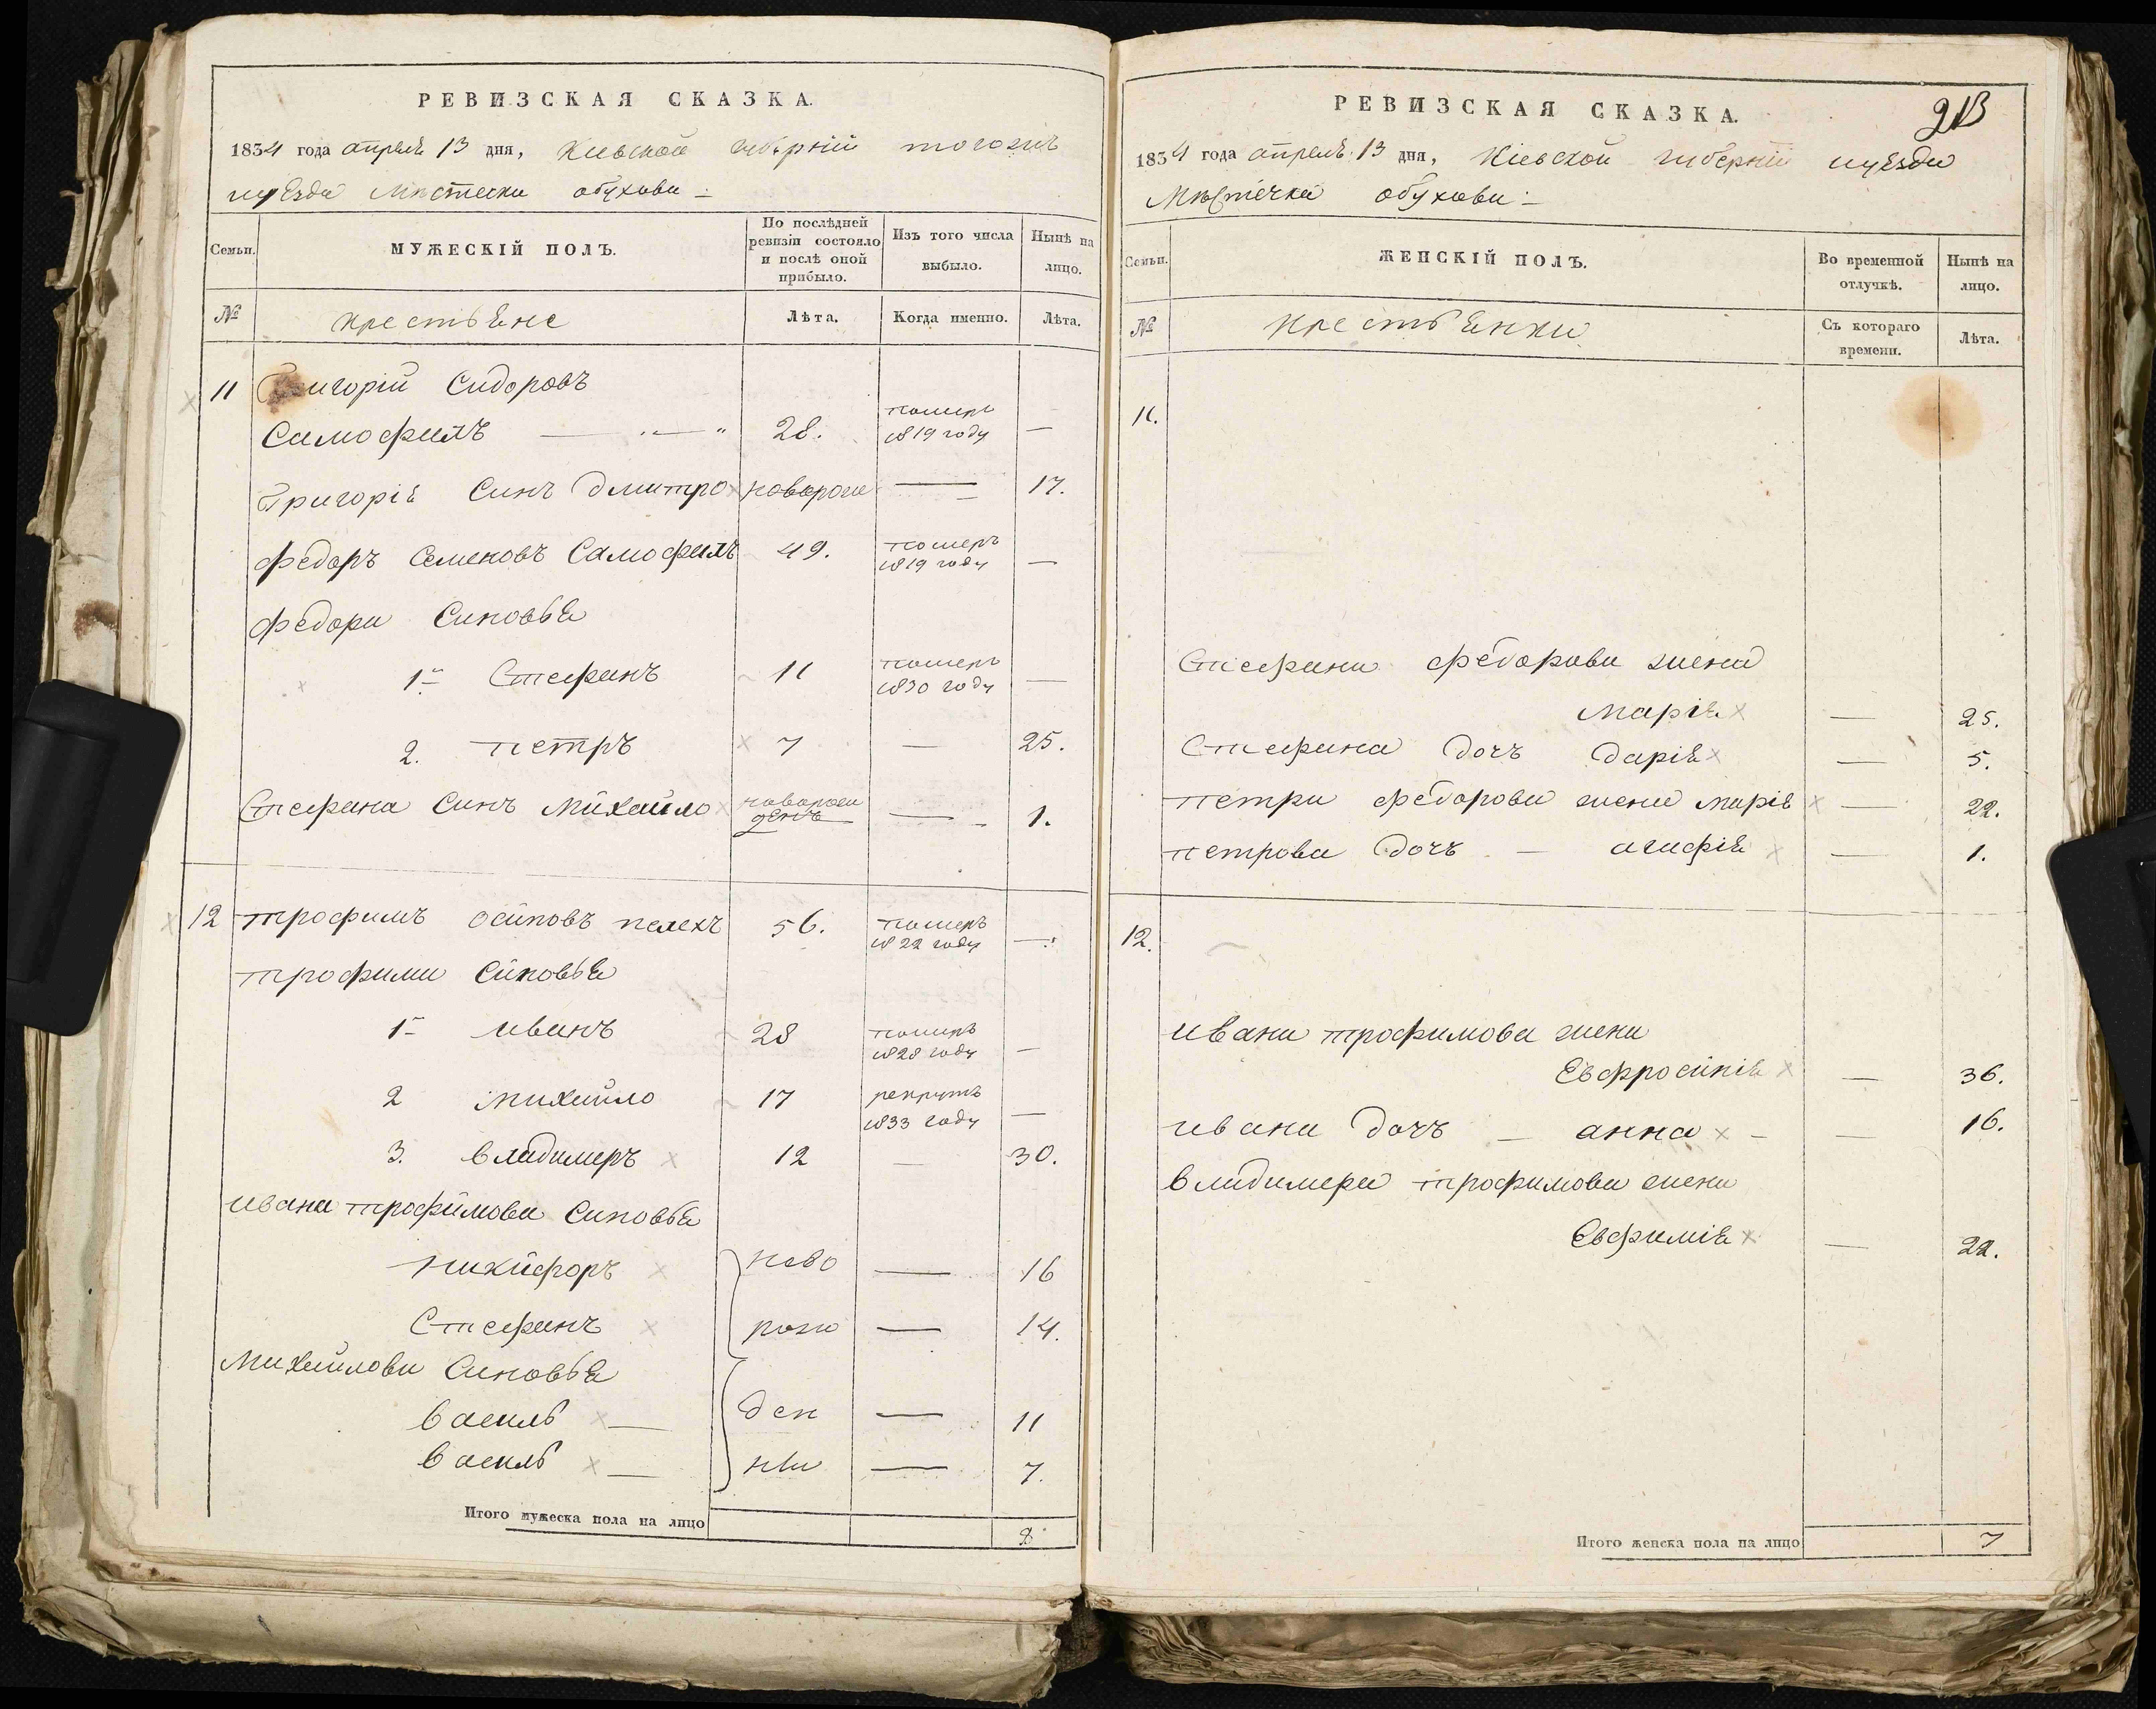 РЕВИЗСКАЯ СКАЗКА.
1834 года апреля 13 дня, Киевской губернiи тогожъ
уѣзда Местечка обухова
Семьи.
МУЖЕСКIЙ ПОЛЪ.
По послѣдней ревизiи состояло и послѣ оной прибыло.
Изъ того числа выбыло.
Нынѣ на лицо.
№
крестьѣне
Лѣта.
Когда именно.
Лѣта.
11 Григорiй Сидоровъ
Самофалъ — 28. померъ 1819 году —
Григорiѣ Синъ дмитро новорож — 17.
федоръ Семеновъ Самофалъ 49. померъ 1819 году —
федора Синовьѣ
1й Стефанъ 11 померъ 1830 году —
2. петръ 7 — 25.
Стефана Синъ Михайло новорож денъ — 1.
12 трофимъ осиповъ пелехъ 56. померъ 1822 году —
трофима Синовьѣ
1й иванъ 28 померъ 1828 году —
2 михайло 17 рекрутъ 1833 году —
3. владимеръ 12 — 30.
ивана трофимова Синовьѣ
никифоръ ново — 16
Стефанъ рож — 14.
Михайлова Синовьѣ
василь — ден — 11
василь — — 7.
Итого мужеска пола на лицо 8
РЕВИЗСКАЯ СКАЗКА.
213
1834 года апрелѣ 13 дня, Кiевской губернiи уѣзда
Мѣстечка обухова
Семьи.
ЖЕНСКIЙ ПОЛЪ.
Во временной отлучкѣ.
Нынѣ на лицо.
№
крестьѣнки
Съ котораго времени.
Лѣта.
11.
Стефана федорова жена
марiѣ — 25.
Стефана дочъ дарiѣ — 5.
петра федорова жена марiѣ — 22.
петрова дочъ — агафiѣ — 1.
12.
ивана трофимова жена
Евфросинiѣ — 36.
ивана дочъ — анна — — 16.
владимера трофимова жена
Евфимiѣ — 22.
Итого женска пола на лицо 7